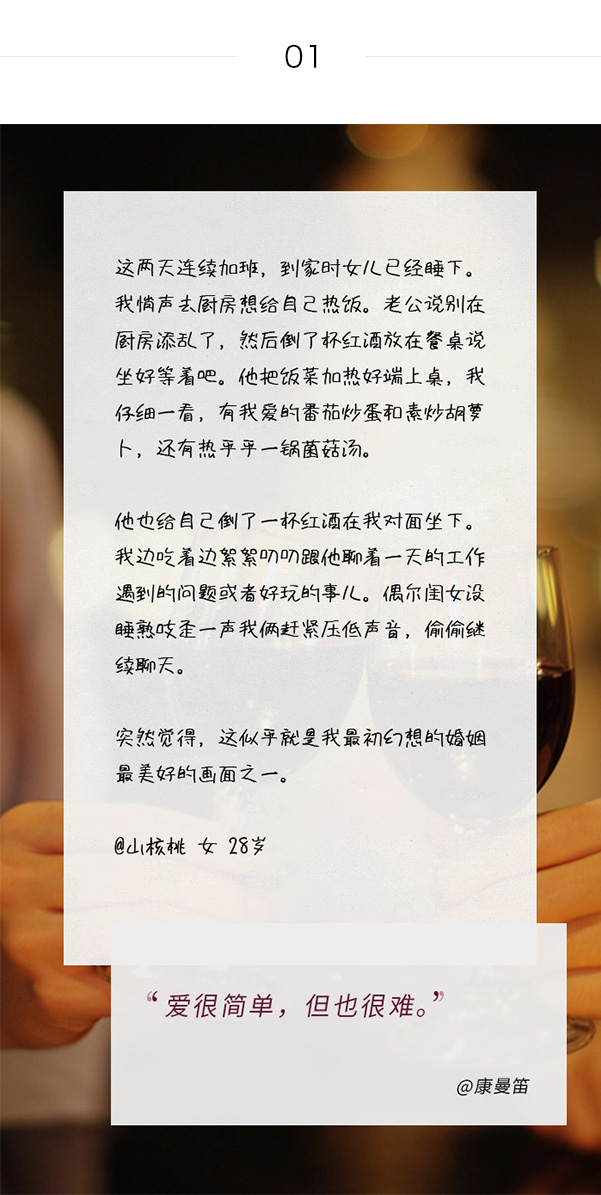 01
这两天连续加班，到家时女儿已经睡下。
我悄声去厨房想给自己热饭。老公说别在
厨房添乱了，然后倒了杯红酒放在餐桌说
坐好等着吧。他把饭菜加热好端上桌，我
仔细一看，有我爱的番茄炒蛋和素炒胡萝
卜，还有热乎乎一锅菌菇汤。
他也给自己倒了一杯红酒在我对面坐下。
我边吃着边絮絮叨叨跟他聊着一天的工作
遇到的问题或者好玩的事儿。偶尔闺女没
睡熟吱歪一声我俩赶紧压低声音，偷偷继
续聊天。
突然觉得，这似乎就是我最初幻想的婚姻
最美好的画面之一。
@山核桃 女 28岁
“爱很简单，但也很难。”
@康曼笛